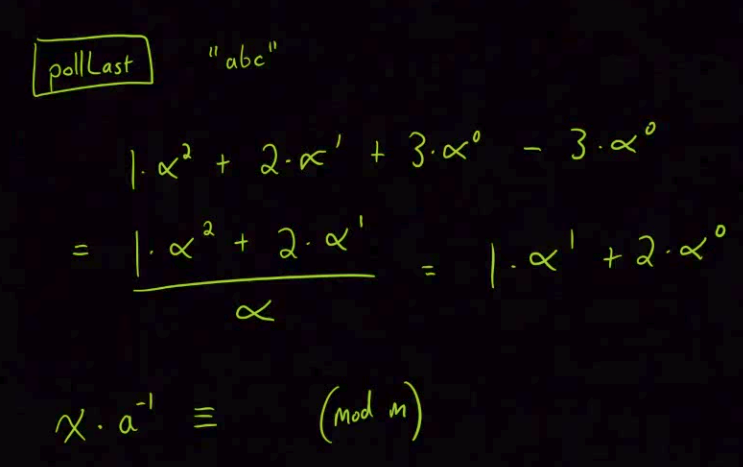 pollLast "abc"
1·α² + 2·α¹ + 3·α⁰ − 3·α⁰
= (1·α² + 2·α¹)/α = 1·α¹ + 2·α⁰
x·a⁻¹ ≡ (mod m)